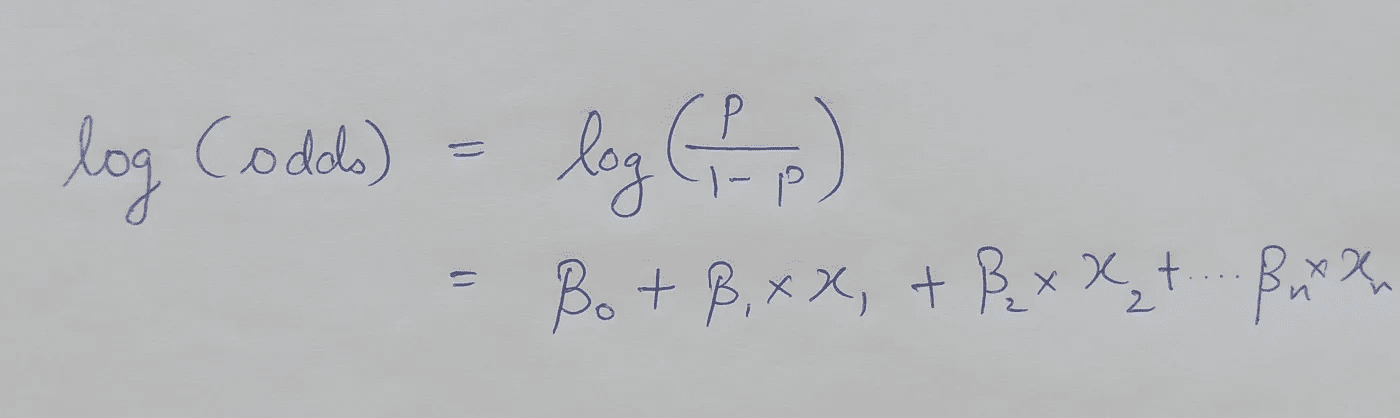 log (odds) = log (p/1-p)
= β₀ + β₁ × x₁ + β₂ × x₂ + .... βₙ × xₙ